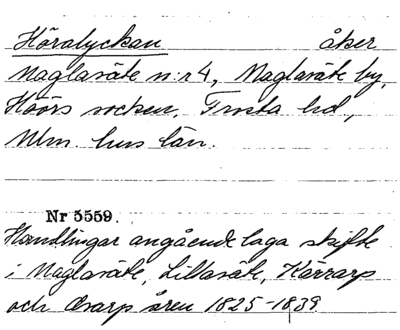 Höralyckan åker
Maglasäte n:r 4, Maglasäte by,
Höörs socken, Frosta hd,
Mlm. hus län.
Nr 5559.
Handlingar angående laga skifte
i Maglasäte, Lillasäte, Kärrarp
och Orarp åren 1825-1839